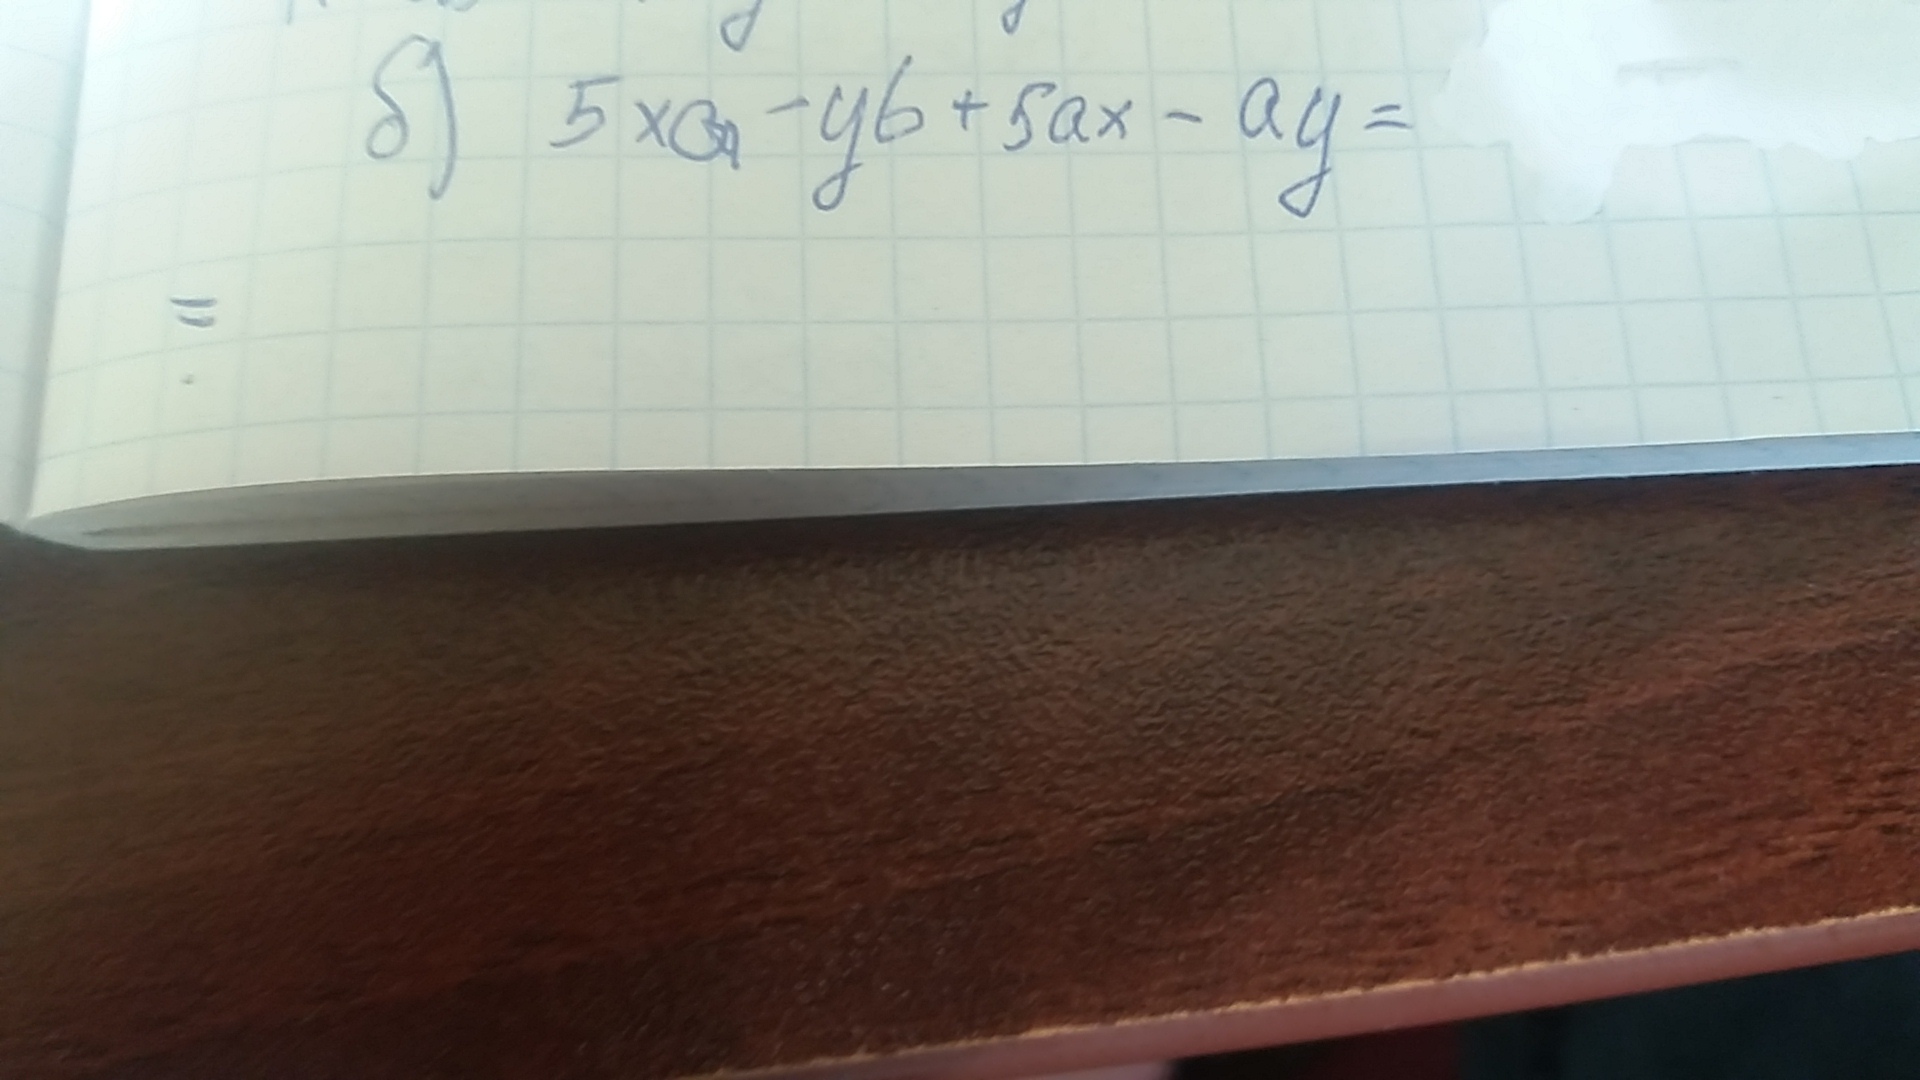 б) 5x -yb+5ax - ay=
=